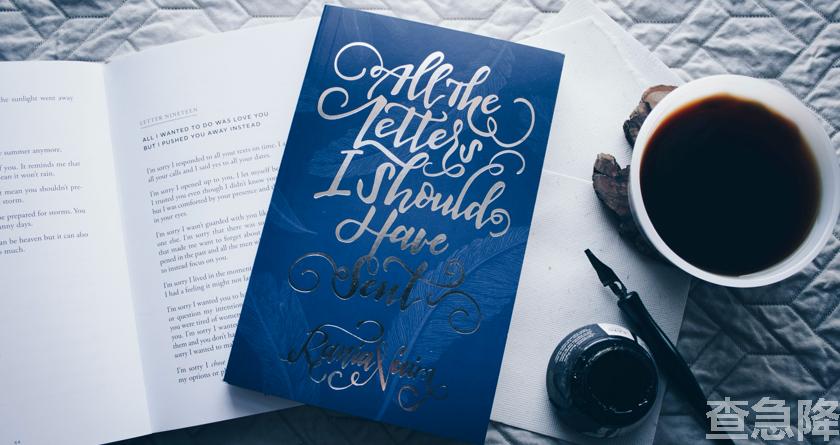 the sunlight went away
summer anymore.
of you. It reminds me that
ean it won't rain.
t mean you shouldn't pre-
storm.
be prepared for storms. You
nny days.
an be heaven but it can also
s much.
64
LETTER NINETEEN
ALL I WANTED TO DO WAS LOVE YOU
BUT I PUSHED YOU AWAY INSTEAD
I'm sorry I responded to all your texts on time. I a
all your calls and I said yes to all your dates.
I'm sorry I opened up to you, I let myself be
I trusted you even though I didn't know you
but I was comforted by your presence and th
in your eyes.
I'm sorry I wasn't guarded with you lik
one else. I'm sorry that there was so
that made me want to forget about
pened in the past and all the men w
to instead focus on you.
I'm sorry I lived in the moment
I had a feeling it might not las
I'm sorry I wanted you to b
or question my intention
you were tired of women
them and you don't ha
sorry I wanted to ma
I'm sorry I chose
my options or p
All The
Letters
I Should
Have
Sent
Rania Naim
查急降